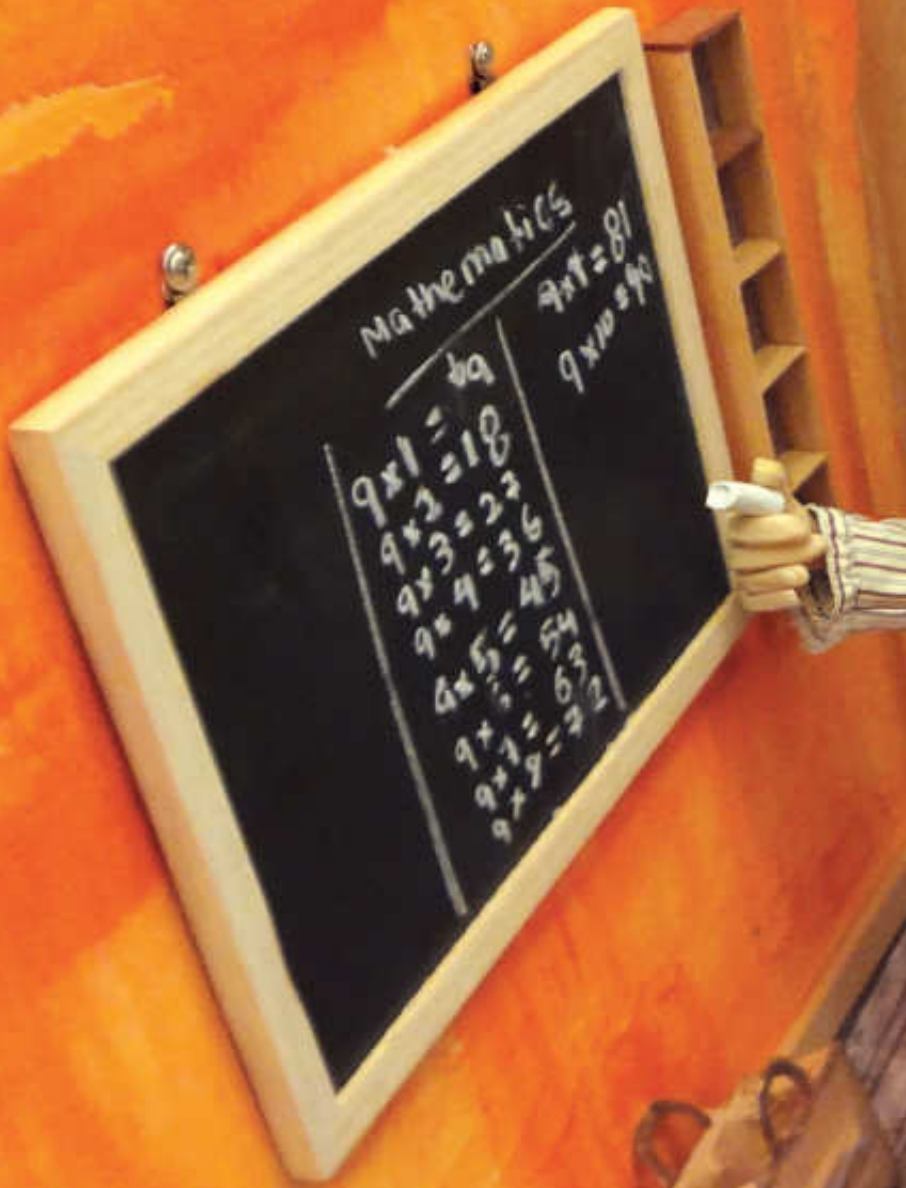 Mathematics
9x1 = 09
9x2 = 18
9x3 = 27
9x4 = 36
9x5 = 45
9x = 54
9x7 = 63
9x8 = 72
9x9 = 81
9x10 = 90